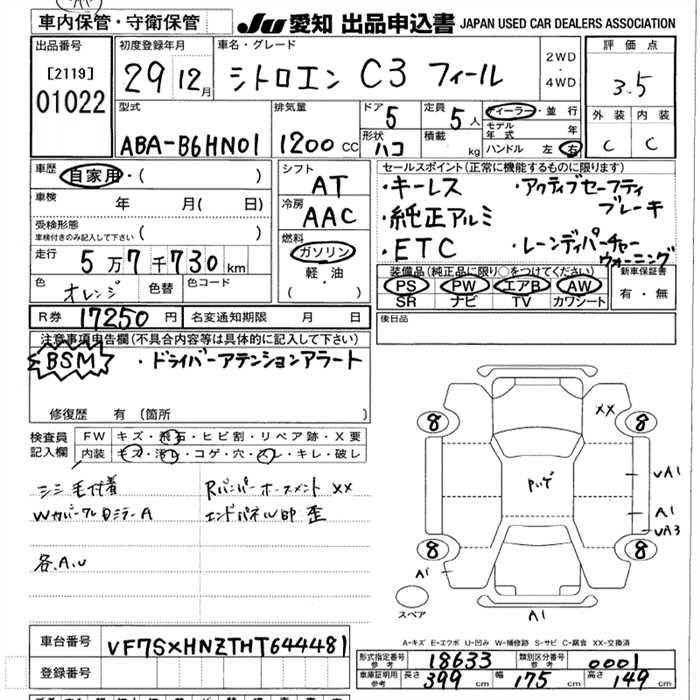 車内保管・守衛保管
JU 愛知 出品申込書 JAPAN USED CAR DEALERS ASSOCIATION
出品番号
[2119]
01022
初度登録年月
29 12月
車名・グレード
シトロエン C3 フィール
2WD
・
4WD
評価点
3.5
外装 内装
C C
型式
ABA-B6HN01
排気量
1200 CC
ドア 5
形状 ハコ
定員 5 人
積載 kg
ディーラー・並行
モデル年式 年
ハンドル 左 右
車歴
自家用・( )
車検
年 月( 日)
受検形態
車検付きのみ記入して下さい ( )
走行
5万7千730km
色
オレンジ
色替
色コード
シフト
AT
冷房
AAC
燃料
ガソリン
・
軽・油
( )
セールスポイント(正常に機能するものに限ります)
・キーレス ・アクティブセーフティブレーキ
・純正アルミ
・ETC ・レーンディパーチャーウォーニング
装備品(純正品に限り〇をつけてください)
PS PW エアB AW
SR ナビ TV カワシート
新車保証書
有・無
R券 17250 円
名変通知期限 月 日
後日品
注意事項申告欄(不具合内容等は具体的に記入して下さい)
BSM ・ドライバーアテンションアラート
修復歴 有 (箇所 )
検査員
記入欄
FW キズ・飛石・ヒビ割・リペア跡・X要
内装 キズ・汚レ・コゲ・穴・スレ・キレ・破レ
シミ 毛付着
各、A、U
エンドパネル
歪
8
8
8
8
XX
A1
A1
A1
スペア
A-キズ E-エクボ U-凹み W-補修跡 S-サビ C-腐食 XX-交換済
車台番号
VF7SXHNZTHT644481
登録番号
形式指定番号
参考
18633
類別区分番号
参考
0001
車庫証明用
参考
長さ 399 cm
幅 175 cm
高さ 149 cm